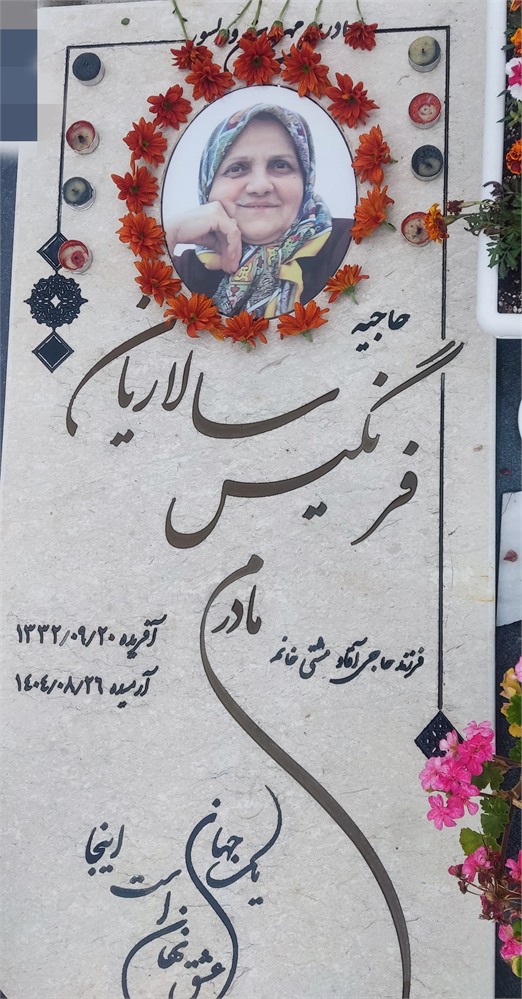 مادر مهربان و دلسوز
حاجیه
فرنگیس سالاریان
مادرم
آفریده ۱۳۳۲/۰۹/۲۰
فرزند حاجی آقا و مشتی خانم
آرمیده ۱۴۰۴/۰۸/۲۶
یک جهان
عشق نهان است اینجا